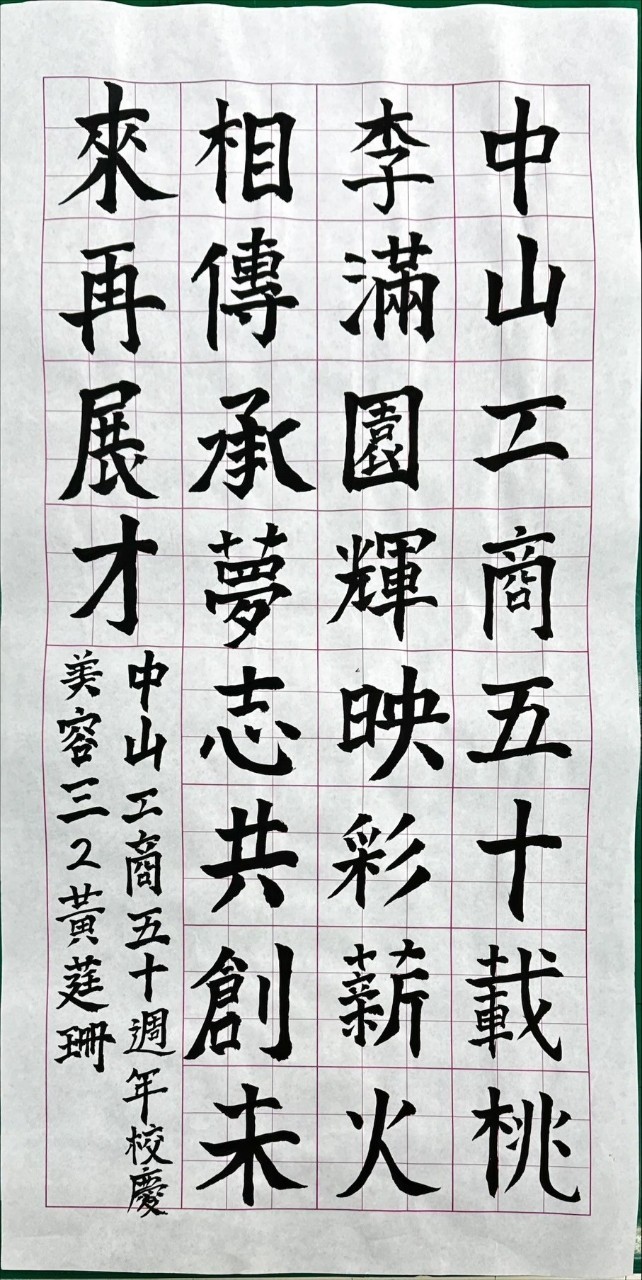 中山工商五十載桃
李滿園輝映彩薪火
相傳承夢志共創未
來再展才
中山工商五十週年校慶
美容三2黃莛珊